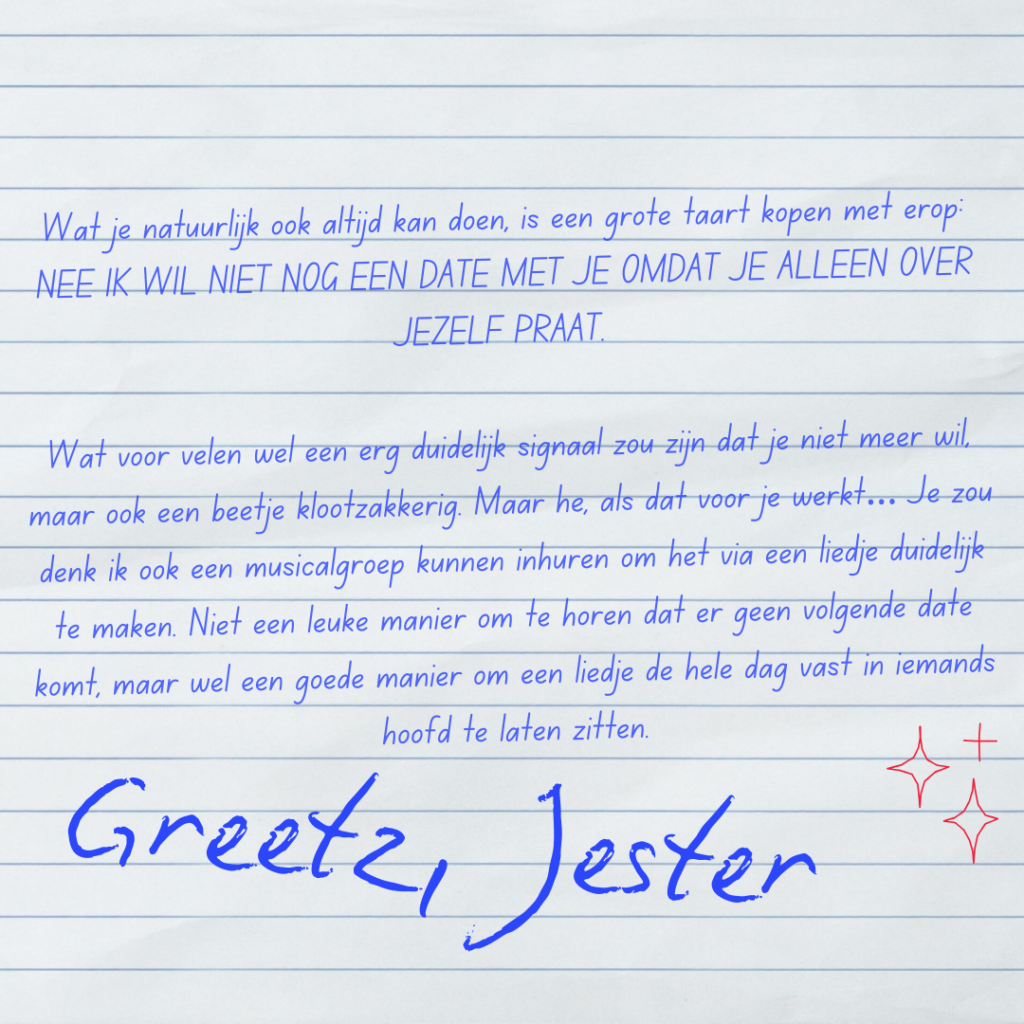 Wat je natuurlijk ook altijd kan doen, is een grote taart kopen met erop:
NEE IK WIL NIET NOG EEN DATE MET JE OMDAT JE ALLEEN OVER
JEZELF PRAAT.
Wat voor velen wel een erg duidelijk signaal zou zijn dat je niet meer wil,
maar ook een beetje klootzakkerig. Maar he, als dat voor je werkt... Je zou
denk ik ook een musicalgroep kunnen inhuren om het via een liedje duidelijk
te maken. Niet een leuke manier om te horen dat er geen volgende date
komt, maar wel een goede manier om een liedje de hele dag vast in iemands
hoofd te laten zitten.
Greetz, Jester